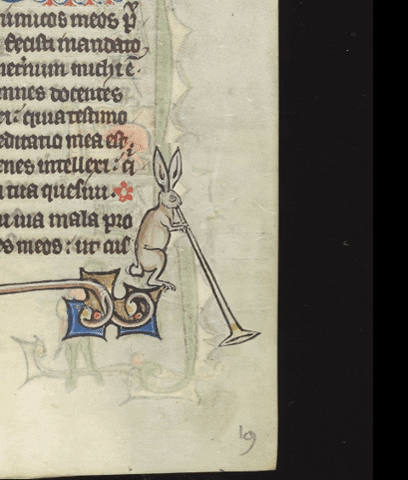 nimicos meos p̄
fecisti mandato
neternum michi ē.
mnes docentes
ei: quia testimo
editatio mea est.
enes intellexi: q̄
a tua quesiui.
ni uia mala pro
es meos: ut cus
19